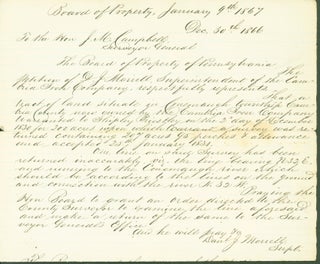 Board of Property, January 9th 1867
Dec. 30th 1866
To the Hon J. M. Campbell
Surveyor General
The Board of Property of Pennsylvania The
Petition of D. J. Morrell, Superintendent of the Cam-
bria Iron Company, respectfully represents That a
tract of land situate in Conemaugh Township Cam-
bria County now owned by the Cambria Iron Company
warranted to day of
1830 for 200 acres upon which warrant a survey was re-
turned containing acres perches & allowance
and accepted January 1831.
The line on said Survey has been
returned inaccurately on the line bearing E
and running to the Conemaugh river which
should be according to the lines on the ground
and connection with the river N. 32 W. Praying the
Hon Board to grant an order directed to the
County Surveyor to examine the line aforesaid
and make a return of the same to the Sur-
veyor General's Office
And he will pray &c
Danl J Morrell
Supt.